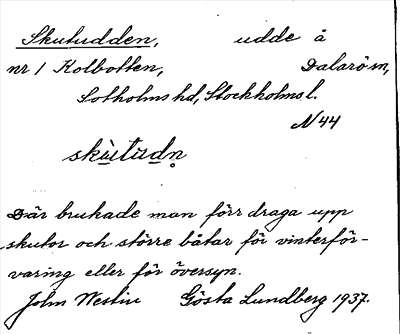 Skutudden, udde å
nr 1 Kolbotten, Dalarö sn,
Sotholms hd, Stockholms l.
N 44
skùtùdn̥
Där brukade man förr draga upp
skutor och större båtar för vinterför-
varing eller för översyn.
John Westin Gösta Lundberg 1937.